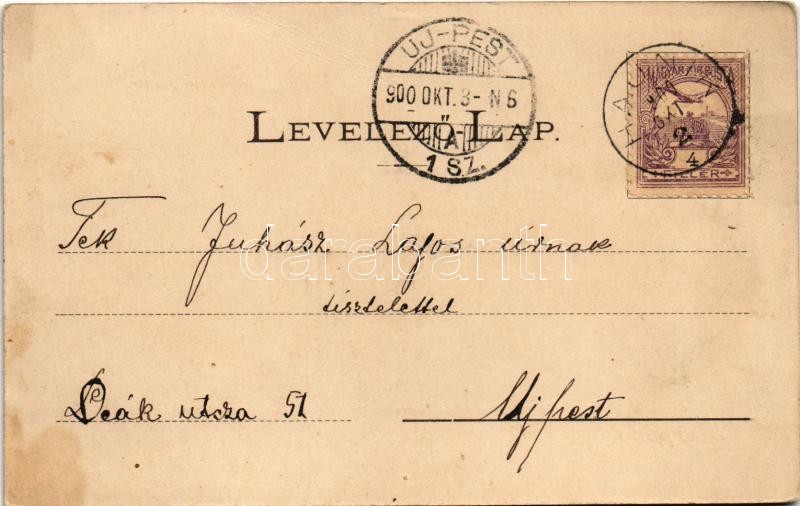 UJ-PEST
900 OKT. 3- N 6
"
A
1 SZ.
MAGYAR KIR. POSTA
OKT
2
4
FILLÉR
LEVELEZŐ-LAP.
Tek Juhász Lajos urnak
tisztelettel
Deák utcza 51 Ujpest
darabanth